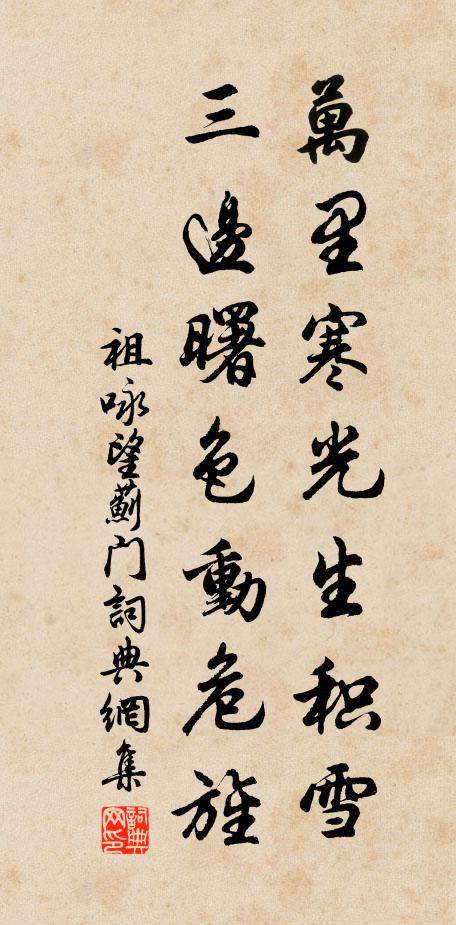 萬里寒光生积雪
三邊曙色動危旌
祖咏望薊门詞典網集
詞典网印